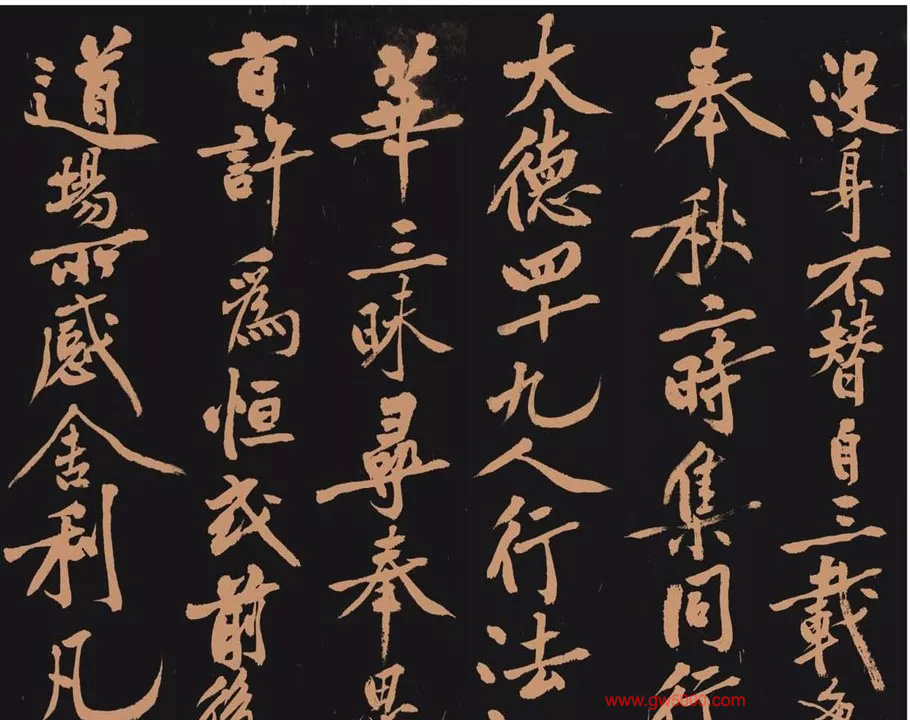 没身不替自三載
奉秋二時集同行
大德四十九人行法
華三昧尋奉恩
旨許爲恒式前後
道場所感舍利凡
www.gw5000.com